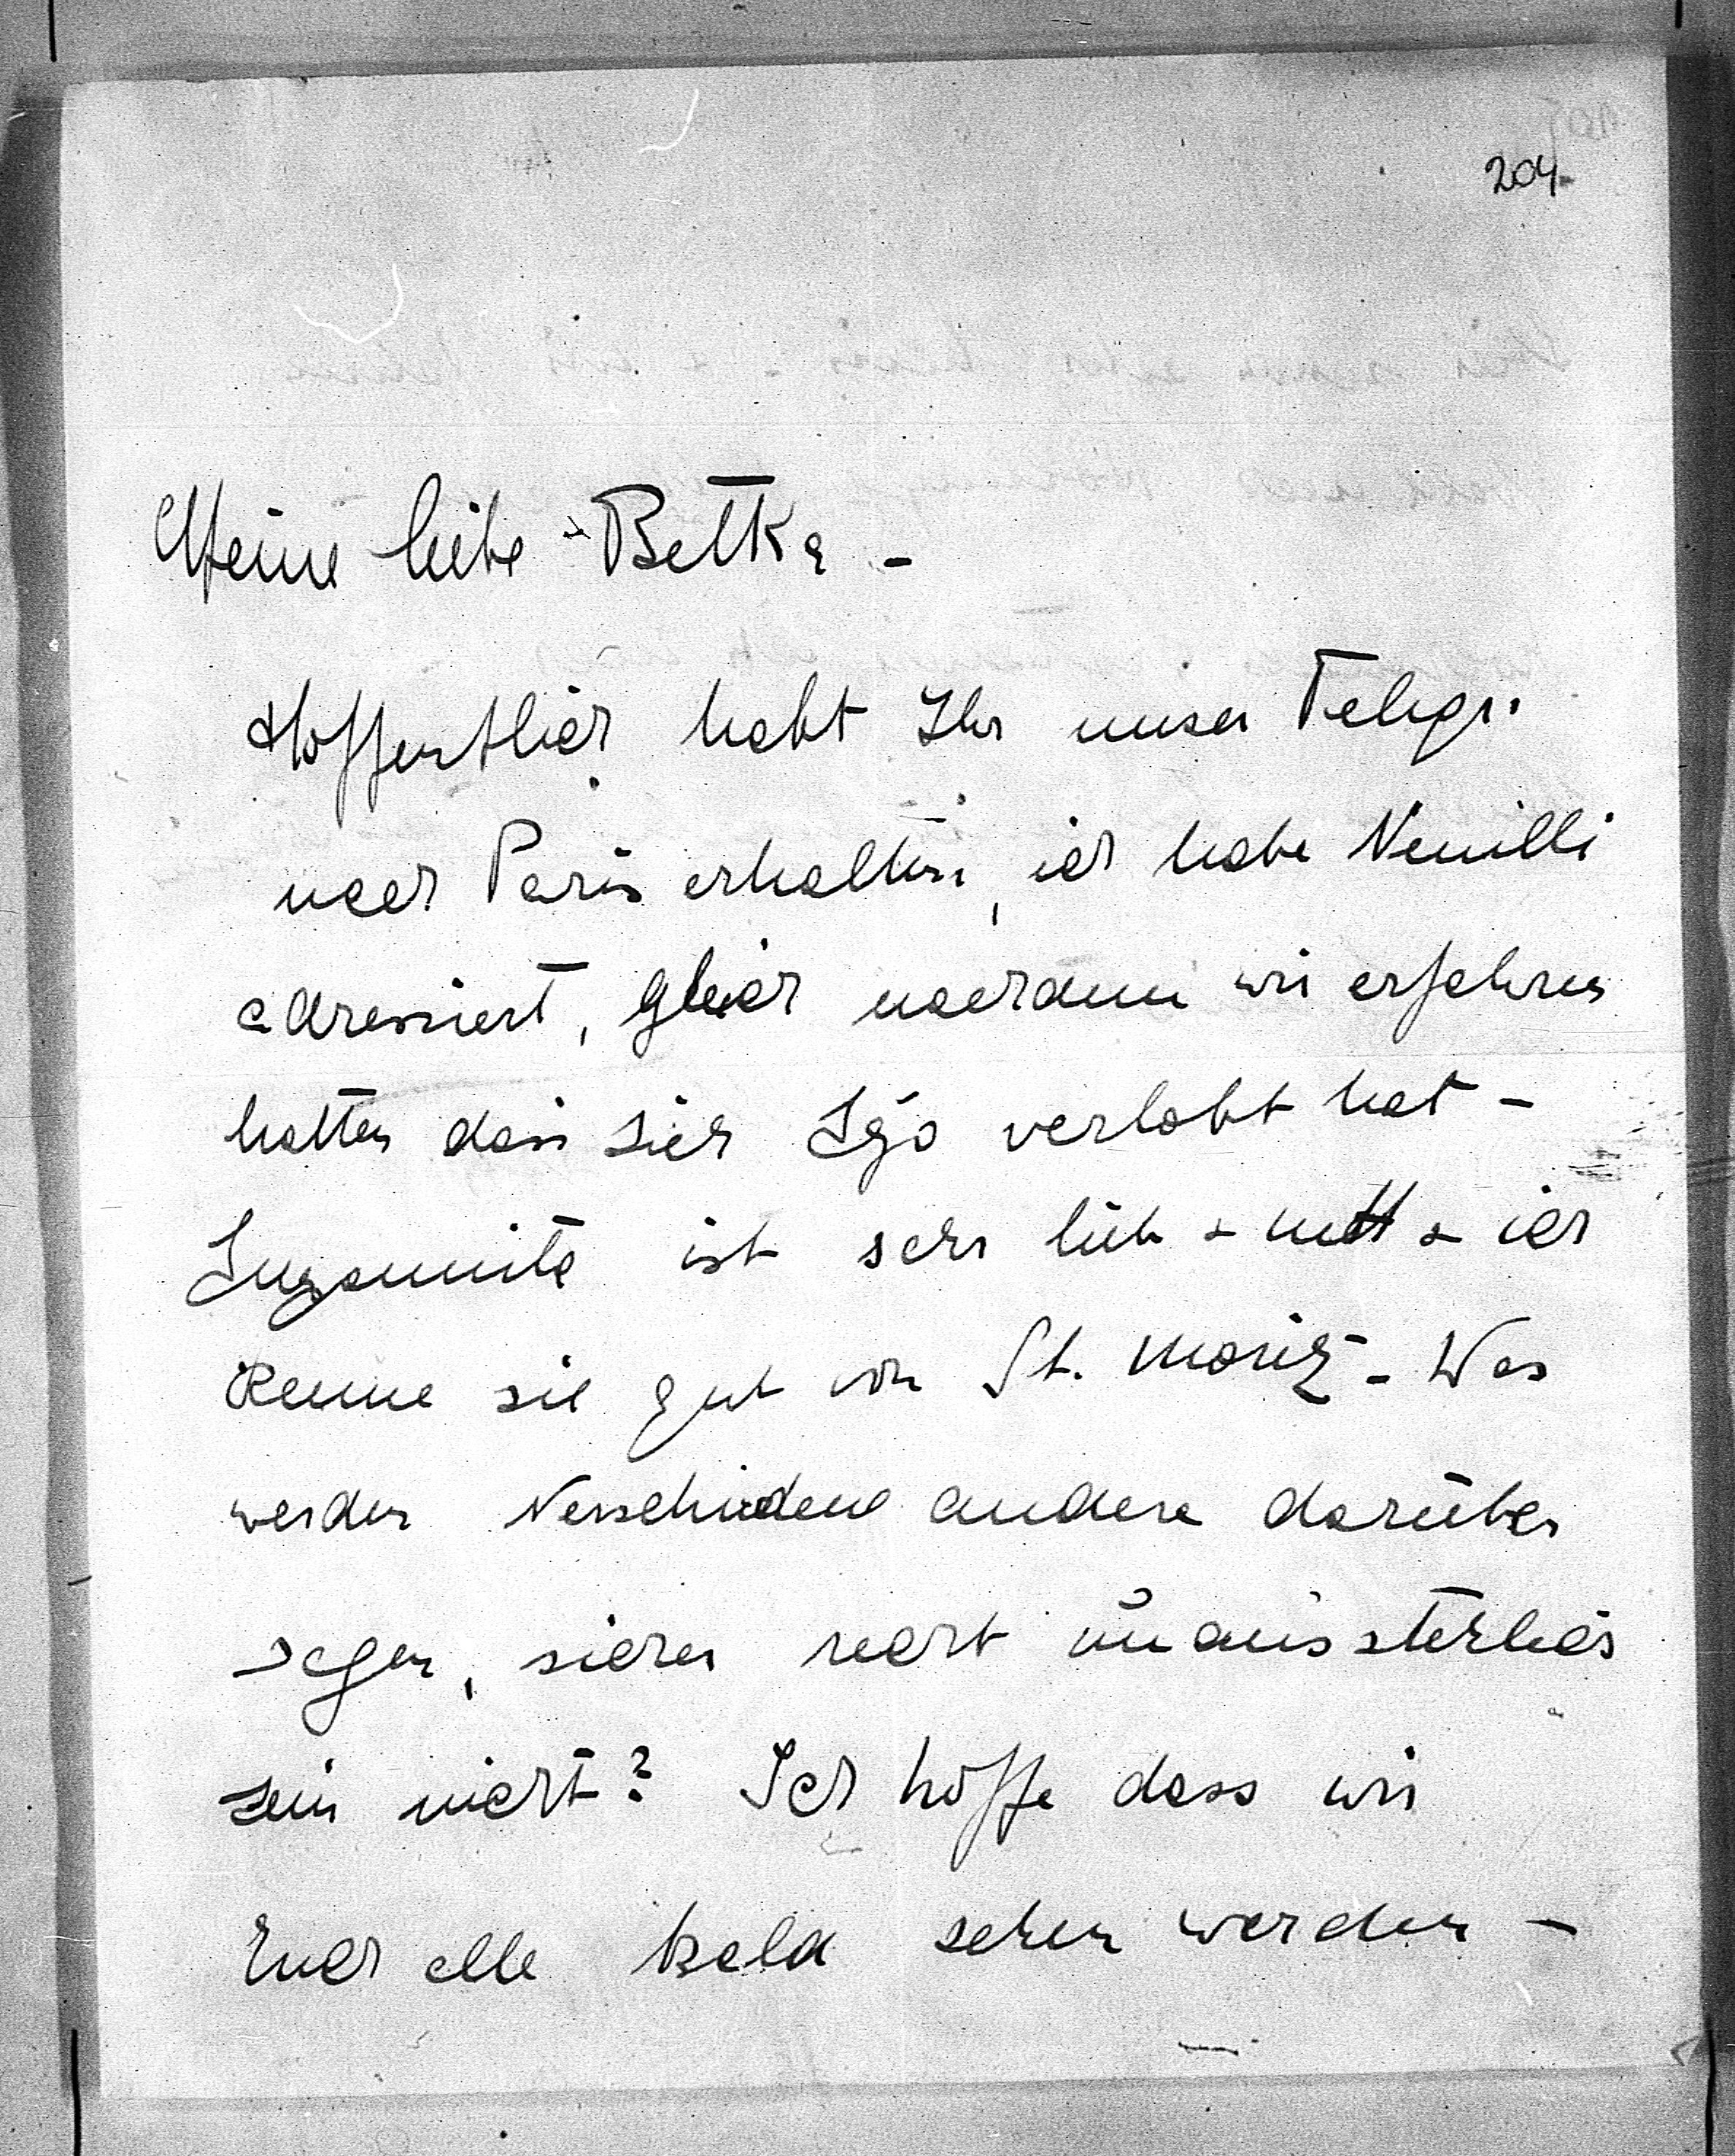 204
Meine liebe Betka -
Hoffentlich habt Ihr unser Telegr.
nach Paris erhalten, ich habe Neuilli
adressiert, gleich nachdem wir erfahren
hatten dass sich verlobt hat -
ist sehr lieb & nett & ich
kenne sie gut von St. Moritz - Was
werden Verschiedene andere darüber
sagen, sicher recht unausstehlich
sein nicht? Ich hoffe dass wir
Euch alle bald sehen werden -